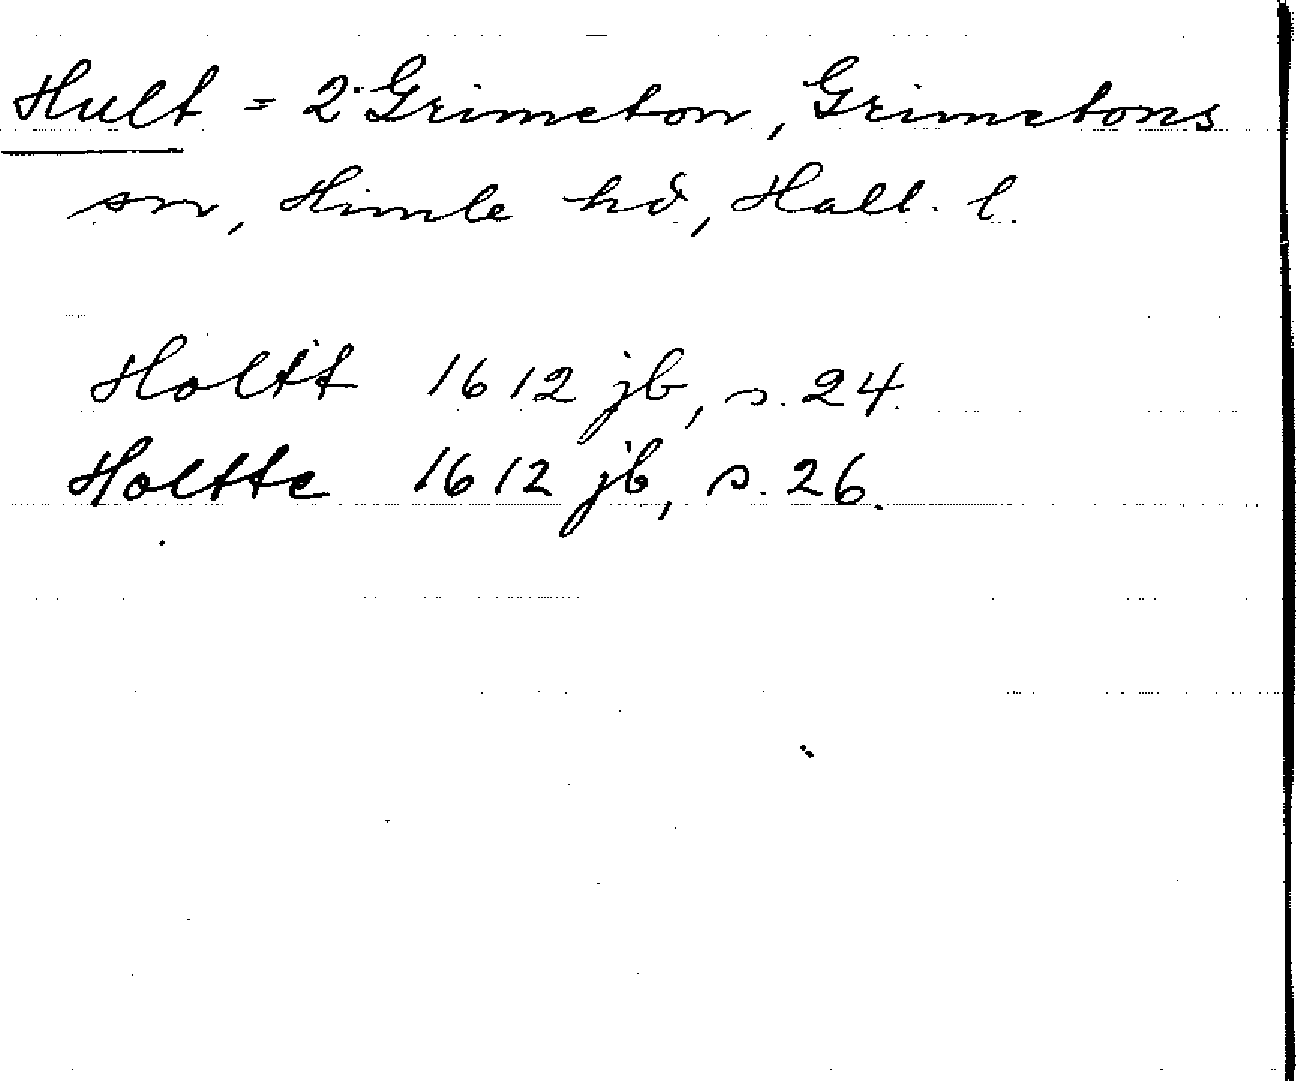 Hult = 2 Grimeton, Grimetons
sn, Himle hd, Hall. l.
Holtt 1612 jb, s. 24.
Holtte 1612 jb, s. 26.